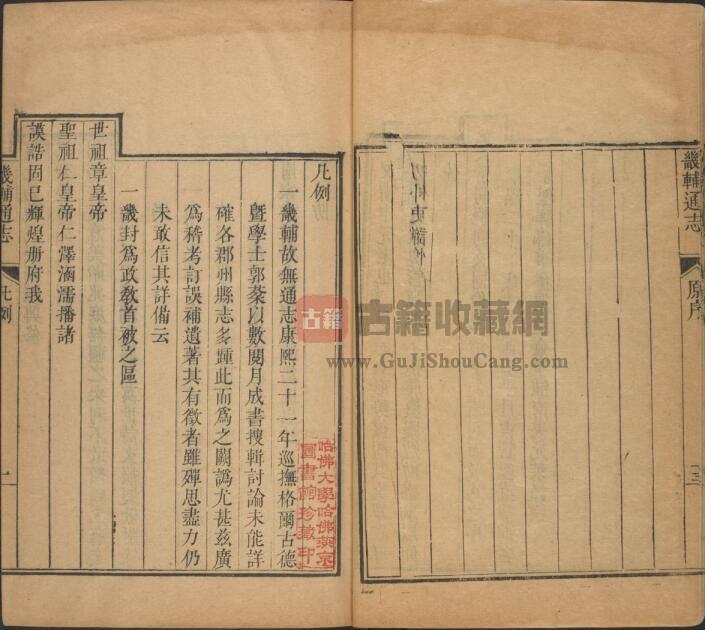 畿輔通志
原序
三
凡例
一畿輔故無通志康熙二十一年巡撫格爾古德
暨學士郭棻以數閱月成書搜輯討論未能詳
確各郡州縣志多踵此而為之闕譌尤甚茲廣
為稽考訂誤補遺著其有徵者雖殫思盡力仍
未敢信其詳備云
一畿封為政教首被之區
世祖章皇帝
聖祖仁皇帝仁澤涵濡播諸
謨誥固已輝煌册府我
畿輔通志
凡例
一
哈佛大學哈佛燕京
圖書館珍藏印
古籍
古籍收藏網
www.GuJiShouCang.com